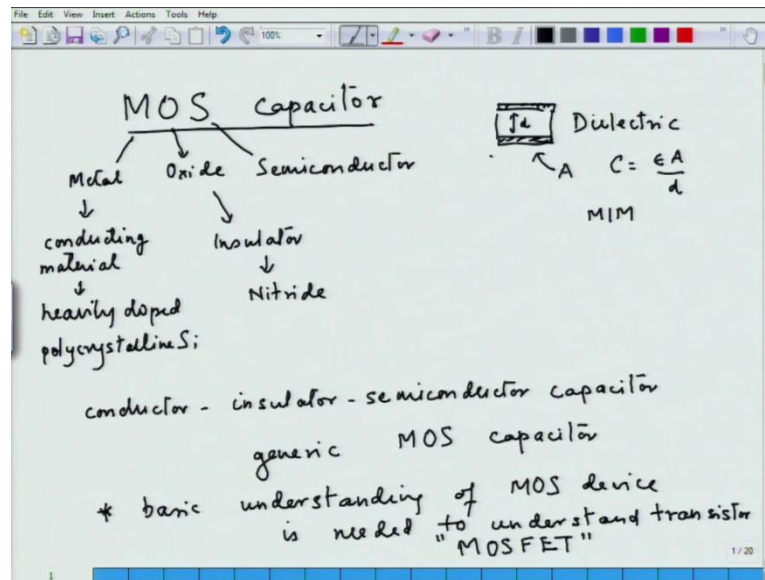 File Edit View Insert Actions Tools Help
100%
B I
MOS capacitor
Metal Oxide Semiconductor
conducting material
heavily doped
polycrystalline Si
Insulator
Nitride
d Dielectric
A C = ϵA/d
MIM
conductor - insulator - semiconductor capacitor
generic MOS capacitor
* basic understanding of MOS device
is needed to understand transistor
"MOSFET"
1 / 20
1